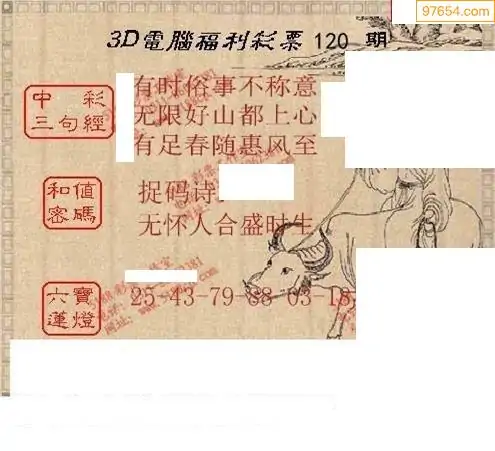 97654.com
3D電腦福利彩票 120 期
中彩
三句經
有时俗事不称意
无限好山都上心
有足春随惠风至
和值
密碼
捉码诗
无怀人合盛时生
六寶
蓮燈
25-43-79-88 03-18